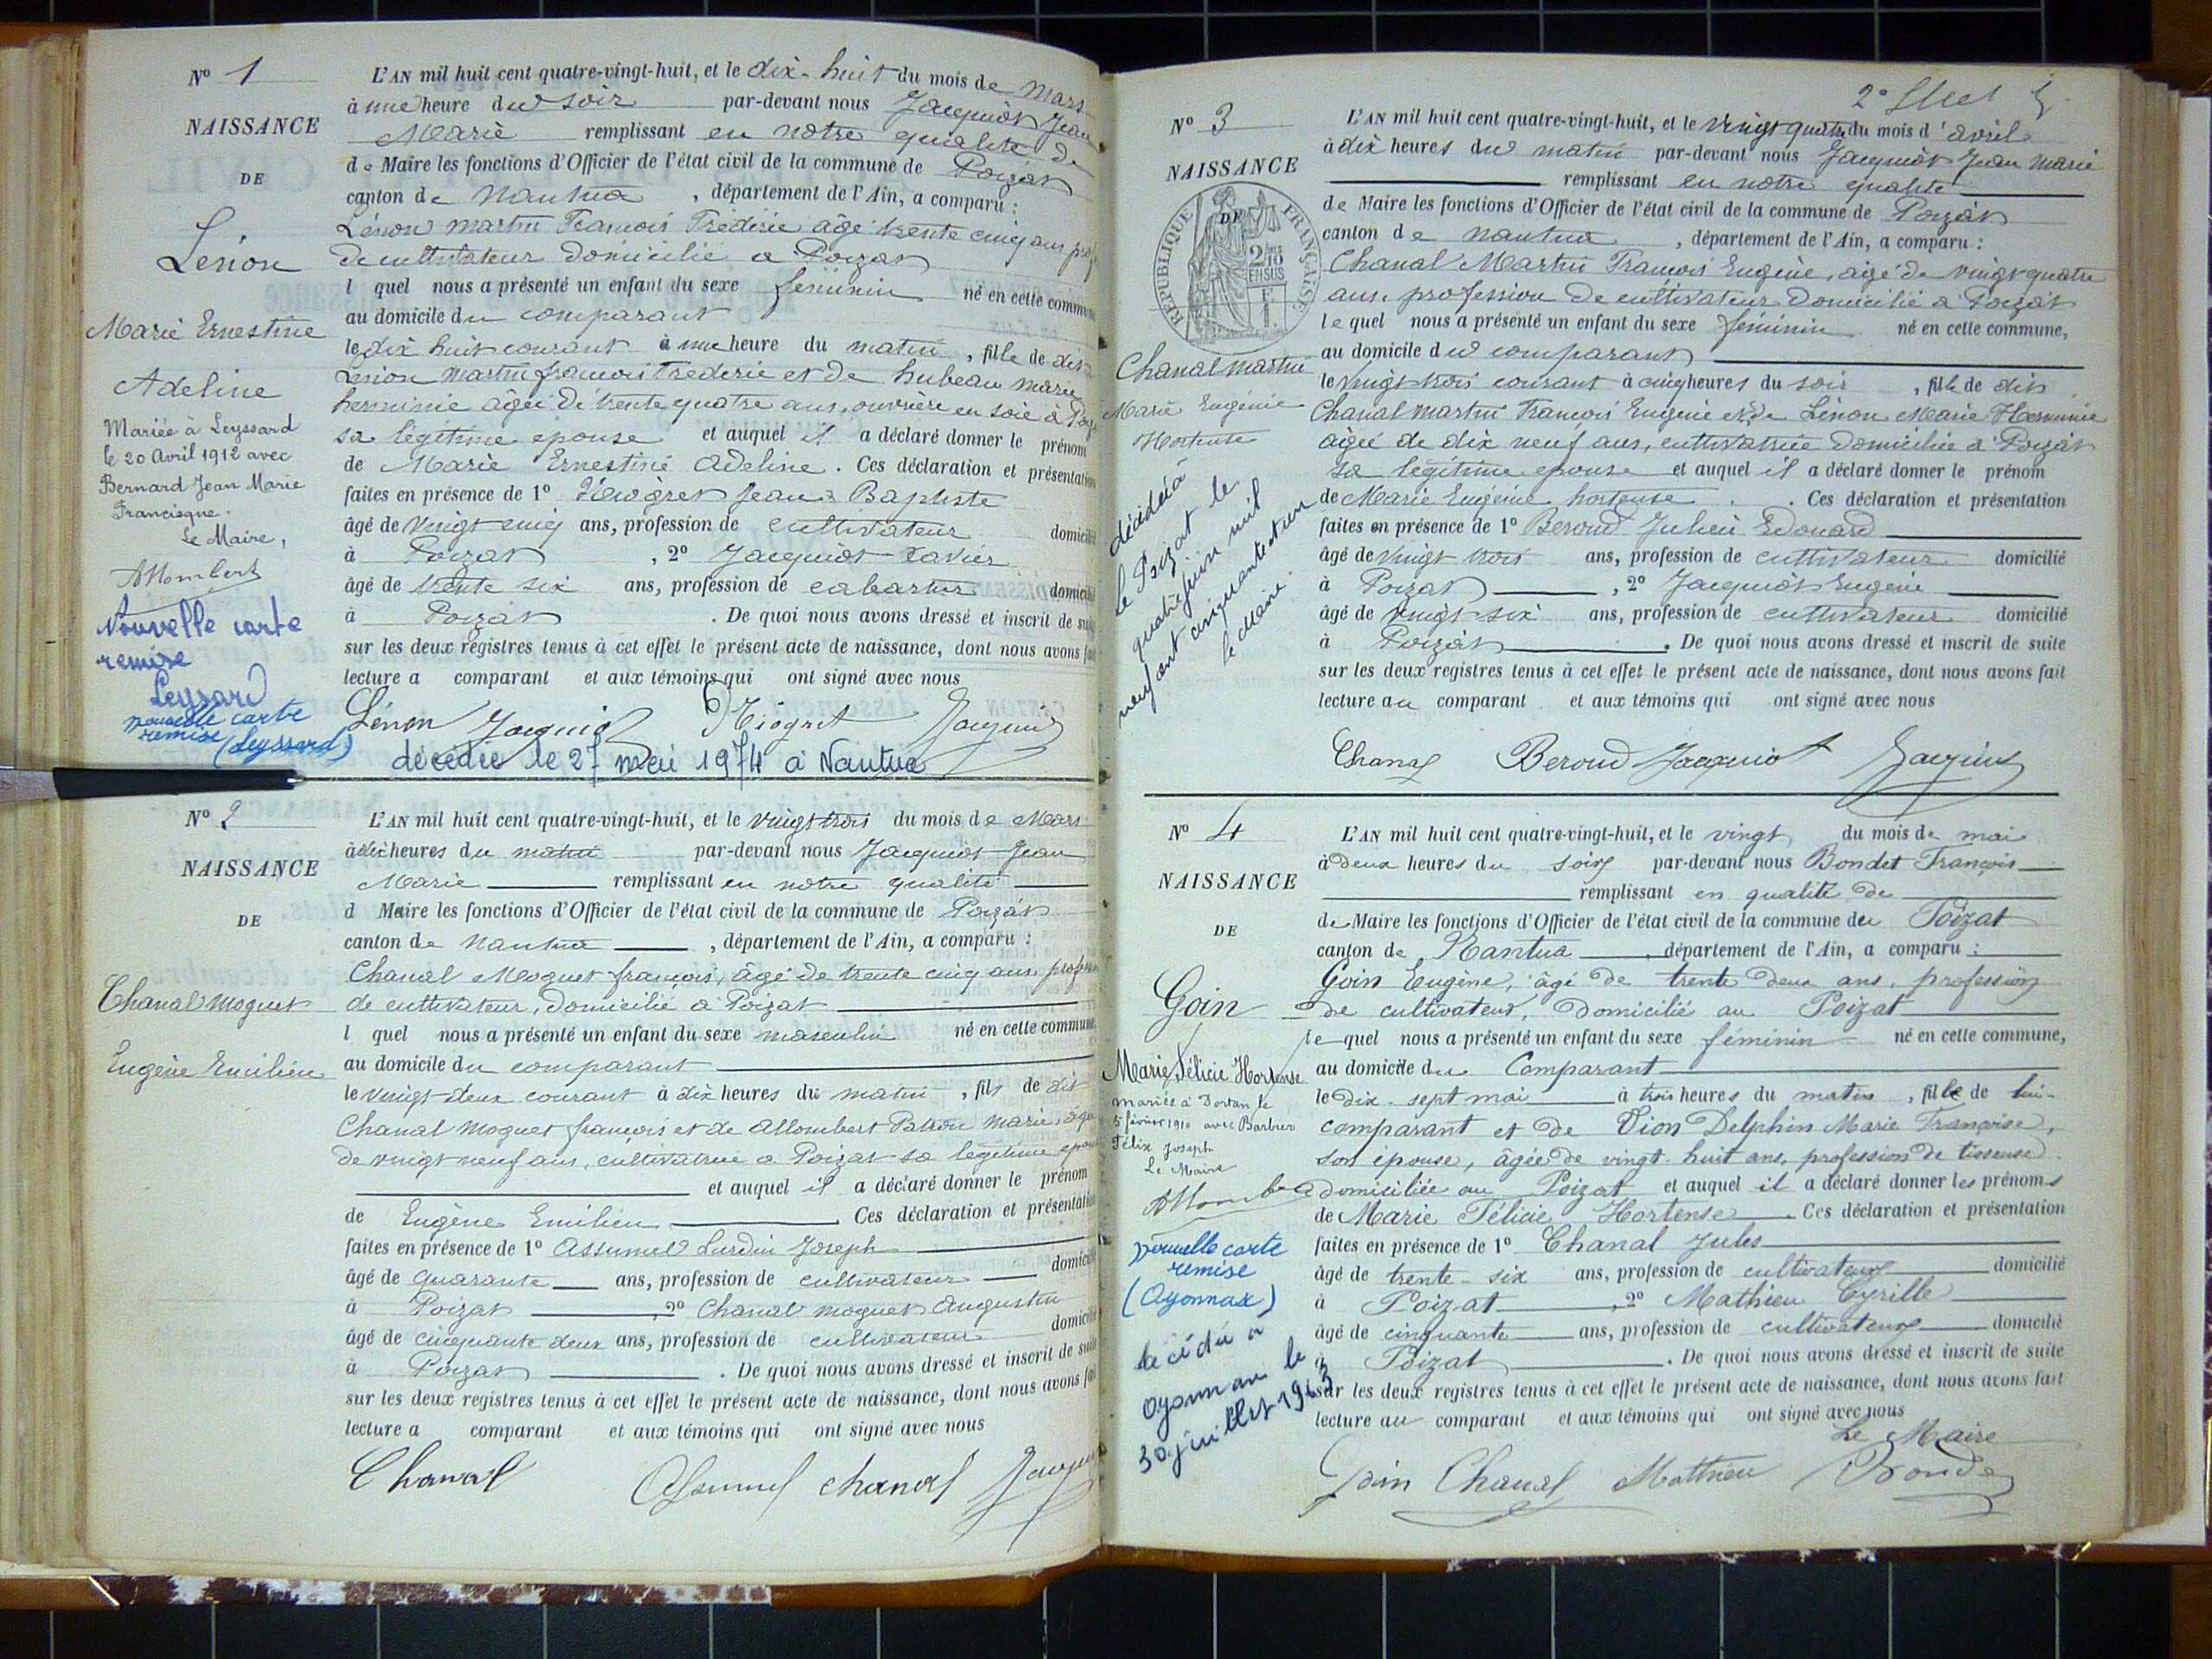 N° 1
NAISSANCE
DE
Lénon
Marie Ernestine
Adeline
Mariée à Leyssard
le 20 Avril 1912 avec
Bernard Jean Marie
Francisque.
Le Maire,
Allombert
Nouvelle carte
remise
Leyssard
nouvelle carte
remise (Leyssard)
L'AN mil huit cent quatre-vingt-huit, et le dix-huit du mois de Mars
à une heure du soir par-devant nous Jacquiot Jean
Marie remplissant en notre qualité de
de Maire les fonctions d'Officier de l'état civil de la commune de Poizat
canton de Nantua, département de l'Ain, a comparu :
Lénon martin François Frédéric âgé trente cinq ans
de cultivateur domicilié a Poizat
l quel nous a présenté un enfant du sexe féminin né en cette commune
au domicile du comparant
le dix huit courant à une heure du matin, fille de dit
Lénion martin françois Frédéric et de hubeau marie
herminie âgée de trente quatre ans, ouvrière en soie à
sa légitime epouse et auquel il a déclaré donner le prénom
de Marie Ernestine Adeline. Ces déclaration et présentation
faites en présence de 1° Jean Baptiste
âgé de vingt cinq ans, profession de cultivateur domicilié
à Poizat, 2° Jacquiot Xavier
âgé de trente six ans, profession de cabartier domicilié
à Poizat. De quoi nous avons dressé et inscrit de suite
sur les deux registres tenus à cet effet le présent acte de naissance, dont nous avons fait
lecture a comparant et aux témoins qui ont signé avec nous
Lénon Jacquiot Niogret Jacquiot
décédée le 27 mai 1974 à Nantua
N° 2
NAISSANCE
DE
Chanal moguet
Eugène Emilien
L'AN mil huit cent quatre-vingt-huit, et le vingt trois du mois de Mars
à dix heures du matin par-devant nous Jacquiot Jean
Marie remplissant en notre qualité
d Maire les fonctions d'Officier de l'état civil de la commune de Poizat
canton de Nantua, département de l'Ain, a comparu :
Chanal Moguet françois, âgé de trente cinq ans, profession
de cultivateur, domicilié a Poizat
l quel nous a présenté un enfant du sexe masculin né en cette commune
au domicile du comparant
le vingt-deux courant à dix heures du matin, fils de dit
Chanal moguet françois et de allombert Patron marie, âgée
de vingt neuf ans, cultivatrice a Poizat sa légitime epouse
et auquel il a déclaré donner le prénom
de Eugène Emilien Ces déclaration et présentation
faites en présence de 1° Assumel Lurdin Joseph
âgé de quarante ans, profession de cultivateur domicilié
à Poizat, 2° Chanal moguet Augustin
âgé de cinquante deux ans, profession de cultivateur domicilié
à Poizat. De quoi nous avons dressé et inscrit de suite
sur les deux registres tenus à cet effet le présent acte de naissance, dont nous avons fait
lecture a comparant et aux témoins qui ont signé avec nous
Chanal Assumel chanal Jacquiot
N° 3
NAISSANCE
DE
RÉPUBLIQUE FRANÇAISE
2/10 EN SUS
Chanal martin
Marie Eugénie
Hortense
décédée à
le Poizat le
quatre juin mil
neuf cent cinquante et un
le Maire.
L'AN mil huit cent quatre-vingt-huit, et le vingt quatre du mois d'avril
à dix heures du matin par-devant nous Jacquiot Jean Marie
remplissant en notre qualité
de Maire les fonctions d'Officier de l'état civil de la commune de Poizat
canton de Nantua, département de l'Ain, a comparu :
Chanal Martin François Eugène, âgé de vingt quatre
ans, profession de cultivateur domicilié a Poizat
le quel nous a présenté un enfant du sexe féminin né en cette commune,
au domicile du comparant
le vingt trois courant à cinq heures du soir, fille de dit
Chanal martin François Eugène et de Lénon Marie Herminie
âgée de dix neuf ans, cultivatrice domiciliée a Poizat
sa légitime epouse et auquel il a déclaré donner le prénom
de Marie Eugénie hortense. Ces déclaration et présentation
faites en présence de 1° Beroud Julien Edouard
âgé de vingt trois ans, profession de cultivateur domicilié
à Poizat, 2° Jacquiot Eugène
âgé de vingt-six ans, profession de cultivateur domicilié
à Poizat. De quoi nous avons dressé et inscrit de suite
sur les deux registres tenus à cet effet le présent acte de naissance, dont nous avons fait
lecture au comparant et aux témoins qui ont signé avec nous
Chanal Beroud Jacquiot Jacquiot
N° 4
NAISSANCE
DE
Goin
Marie Félicie Hortense
mariée à Dortan le
5 février 1910 avec Barbier
Félix Joseph
Le Maire
Allombert
nouvelle carte
remise
(Oyonnax)
décédée à
Oyonnax le
30 juillet 1963
L'AN mil huit cent quatre-vingt-huit, et le vingt du mois de mai
à deux heures du soir par-devant nous Bondet François
remplissant en qualité de
de Maire les fonctions d'Officier de l'état civil de la commune du Poizat
canton de Nantua, département de l'Ain, a comparu :
Goin Eugène, âgé de trente deux ans, profession
de cultivateur, domicilié au Poizat
le quel nous a présenté un enfant du sexe féminin né en cette commune,
au domicile du Comparant
le dix-sept mai à trois heures du matin, fille de lui-
comparant et de Vion Delphin Marie Françoise,
son épouse, âgée de vingt-huit ans, profession de tisseuse
domiciliée au Poizat et auquel il a déclaré donner les prénoms
de Marie Félicie Hortense. Ces déclaration et présentation
faites en présence de 1° Chanal Jules
âgé de trente-six ans, profession de cultivateur domicilié
à Poizat, 2° Mathieu Cyrille
âgé de cinquante ans, profession de cultivateur domicilié
à Poizat. De quoi nous avons dressé et inscrit de suite
sur les deux registres tenus à cet effet le présent acte de naissance, dont nous avons fait
lecture au comparant et aux témoins qui ont signé avec nous
Le Maire
Goin Chanal Mathieu Bondet